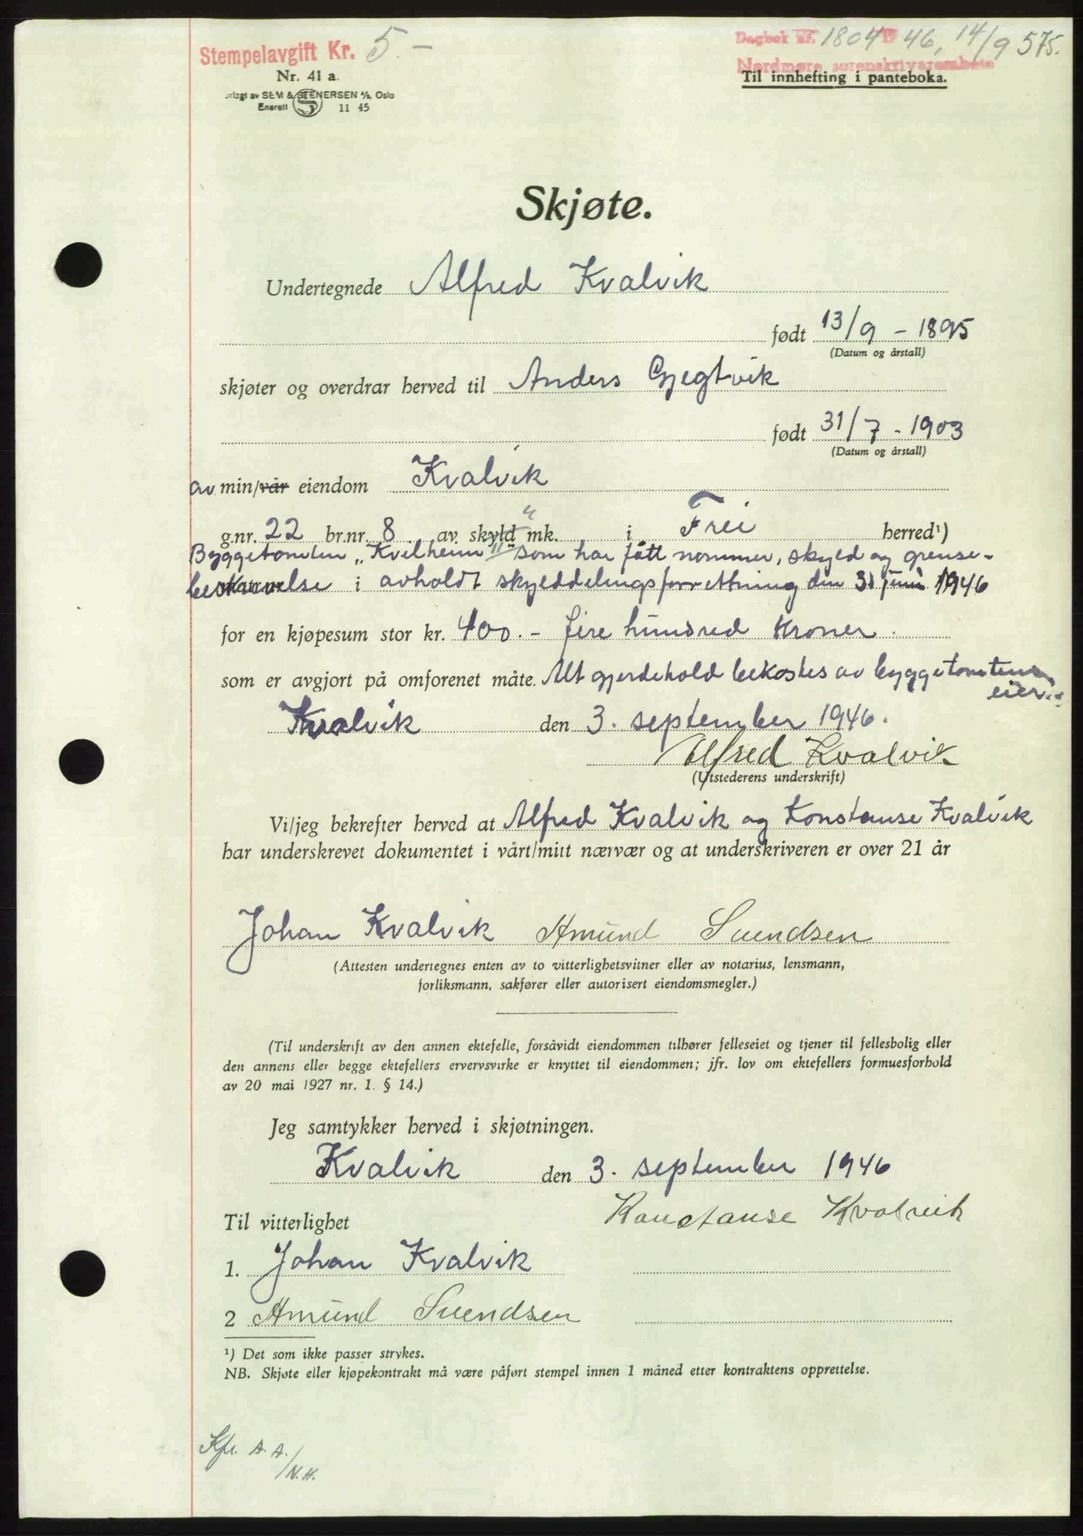 Stempelavgift Kr. 5.-
Dagbok nr. 1804 1946, 14/9 575.
Nordmøre sorenskriverembete
Nr. 41 a.
Til innhefting i panteboka.
orlagt av SEM & STENERSEN A/S, Oslo
Enerett S 11 45
Skjøte.
Undertegnede Alfred Kvalvik
født 13/9 - 1895
(Datum og årstall)
skjøter og overdrar herved til Anders Gjegtvik
født 31/7 - 1903
(Datum og årstall)
av min/vår eiendom Kvalvik
g.nr. 22 br.nr. 8 av skyld " mk. i Frei herred¹)
Byggetomten „Kvilheim" som har fått nommer, skyld og grense-
beskrivelse i avholdt skylddelingsforrettning den juni 1946
for en kjøpesum stor kr. 400.- fire hundred kroner.
som er avgjort på omforenet måte. Alt gjerdehold bekostes av byggetomtens
eier.
Kvalvik den 3. september 1946.
Alfred Kvalvik
(Utstederens underskrift)
Vi/jeg bekrefter herved at Alfred Kvalvik og Konstanse Kvalvik
har underskrevet dokumentet i vårt/mitt nærvær og at underskriveren er over 21 år
Johan Kvalvik Amund Svendsen
(Attesten undertegnes enten av to vitterlighetsvitner eller av notarius, lensmann,
forliksmann, sakfører eller autorisert eiendomsmegler.)
(Til underskrift av den annen ektefelle, forsåvidt eiendommen tilhører felleseiet og tjener til fellesbolig eller
den annens eller begge ektefellers ervervsvirke er knyttet til eiendommen; jfr. lov om ektefellers formuesforhold
av 20 mai 1927 nr. 1. § 14.)
Jeg samtykker herved i skjøtningen.
Kvalvik den 3. september 1946
Til vitterlighet
Konstanse Kvalvik
1. Johan Kvalvik
2 Amund Svendsen
¹) Det som ikke passer strykes.
NB. Skjøte eller kjøpekontrakt må være påført stempel innen 1 måned etter kontraktens opprettelse.
Kfr. A. A./N.H.